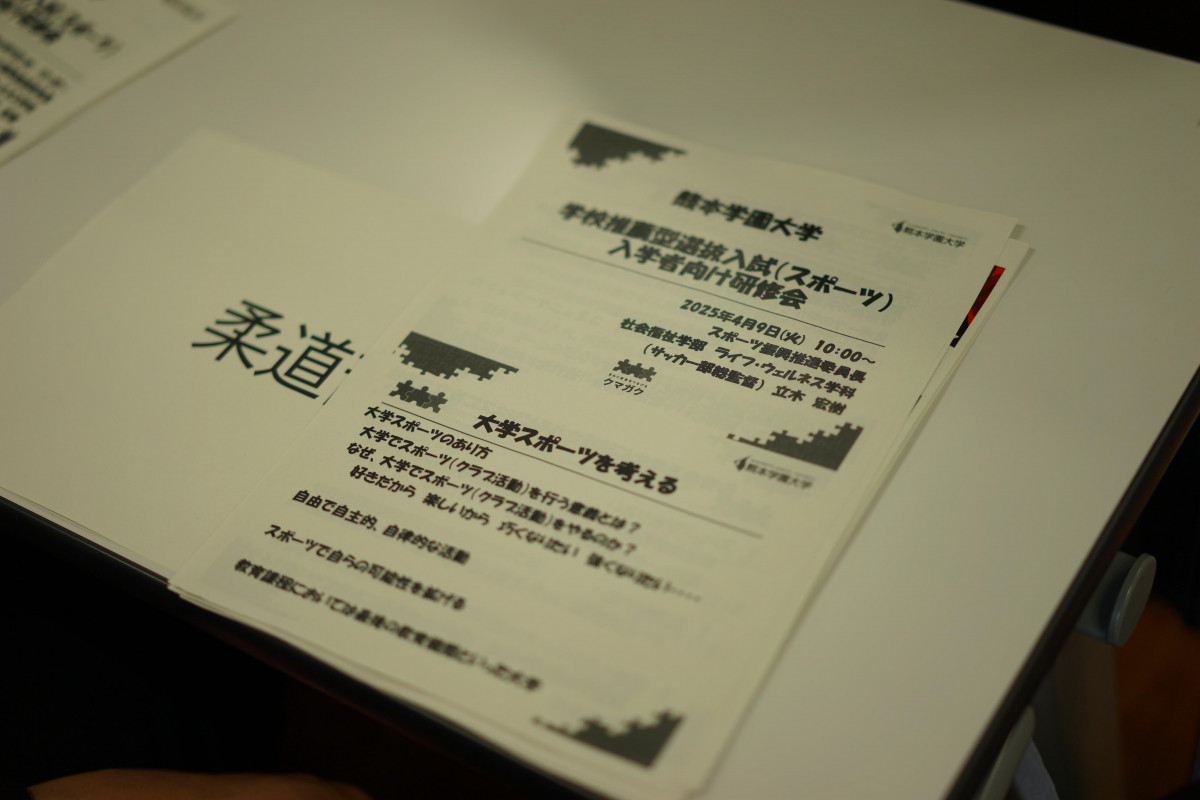 柔道
熊本学園大学
熊本学園大学
学校推薦型選抜入試(スポーツ)
入学者向け研修会
2025年4月9日(火) 10:00~
スポーツ振興推進委員長
社会福祉学部 ライフ・ウェルネス学科
(サッカー部総監督) 立木 宏樹
クマガク
熊本学園大学
大学スポーツを考える
大学スポーツのあり方
大学でスポーツ(クラブ活動)を行う意義とは?
なぜ、大学でスポーツ(クラブ活動)をやるのか?
好きだから 楽しいから 巧くなりたい 強くなりたい……
自由で自主的、自律的な活動
スポーツで自らの可能性を拡げる
教育課程においては最後の教育機関といった大学